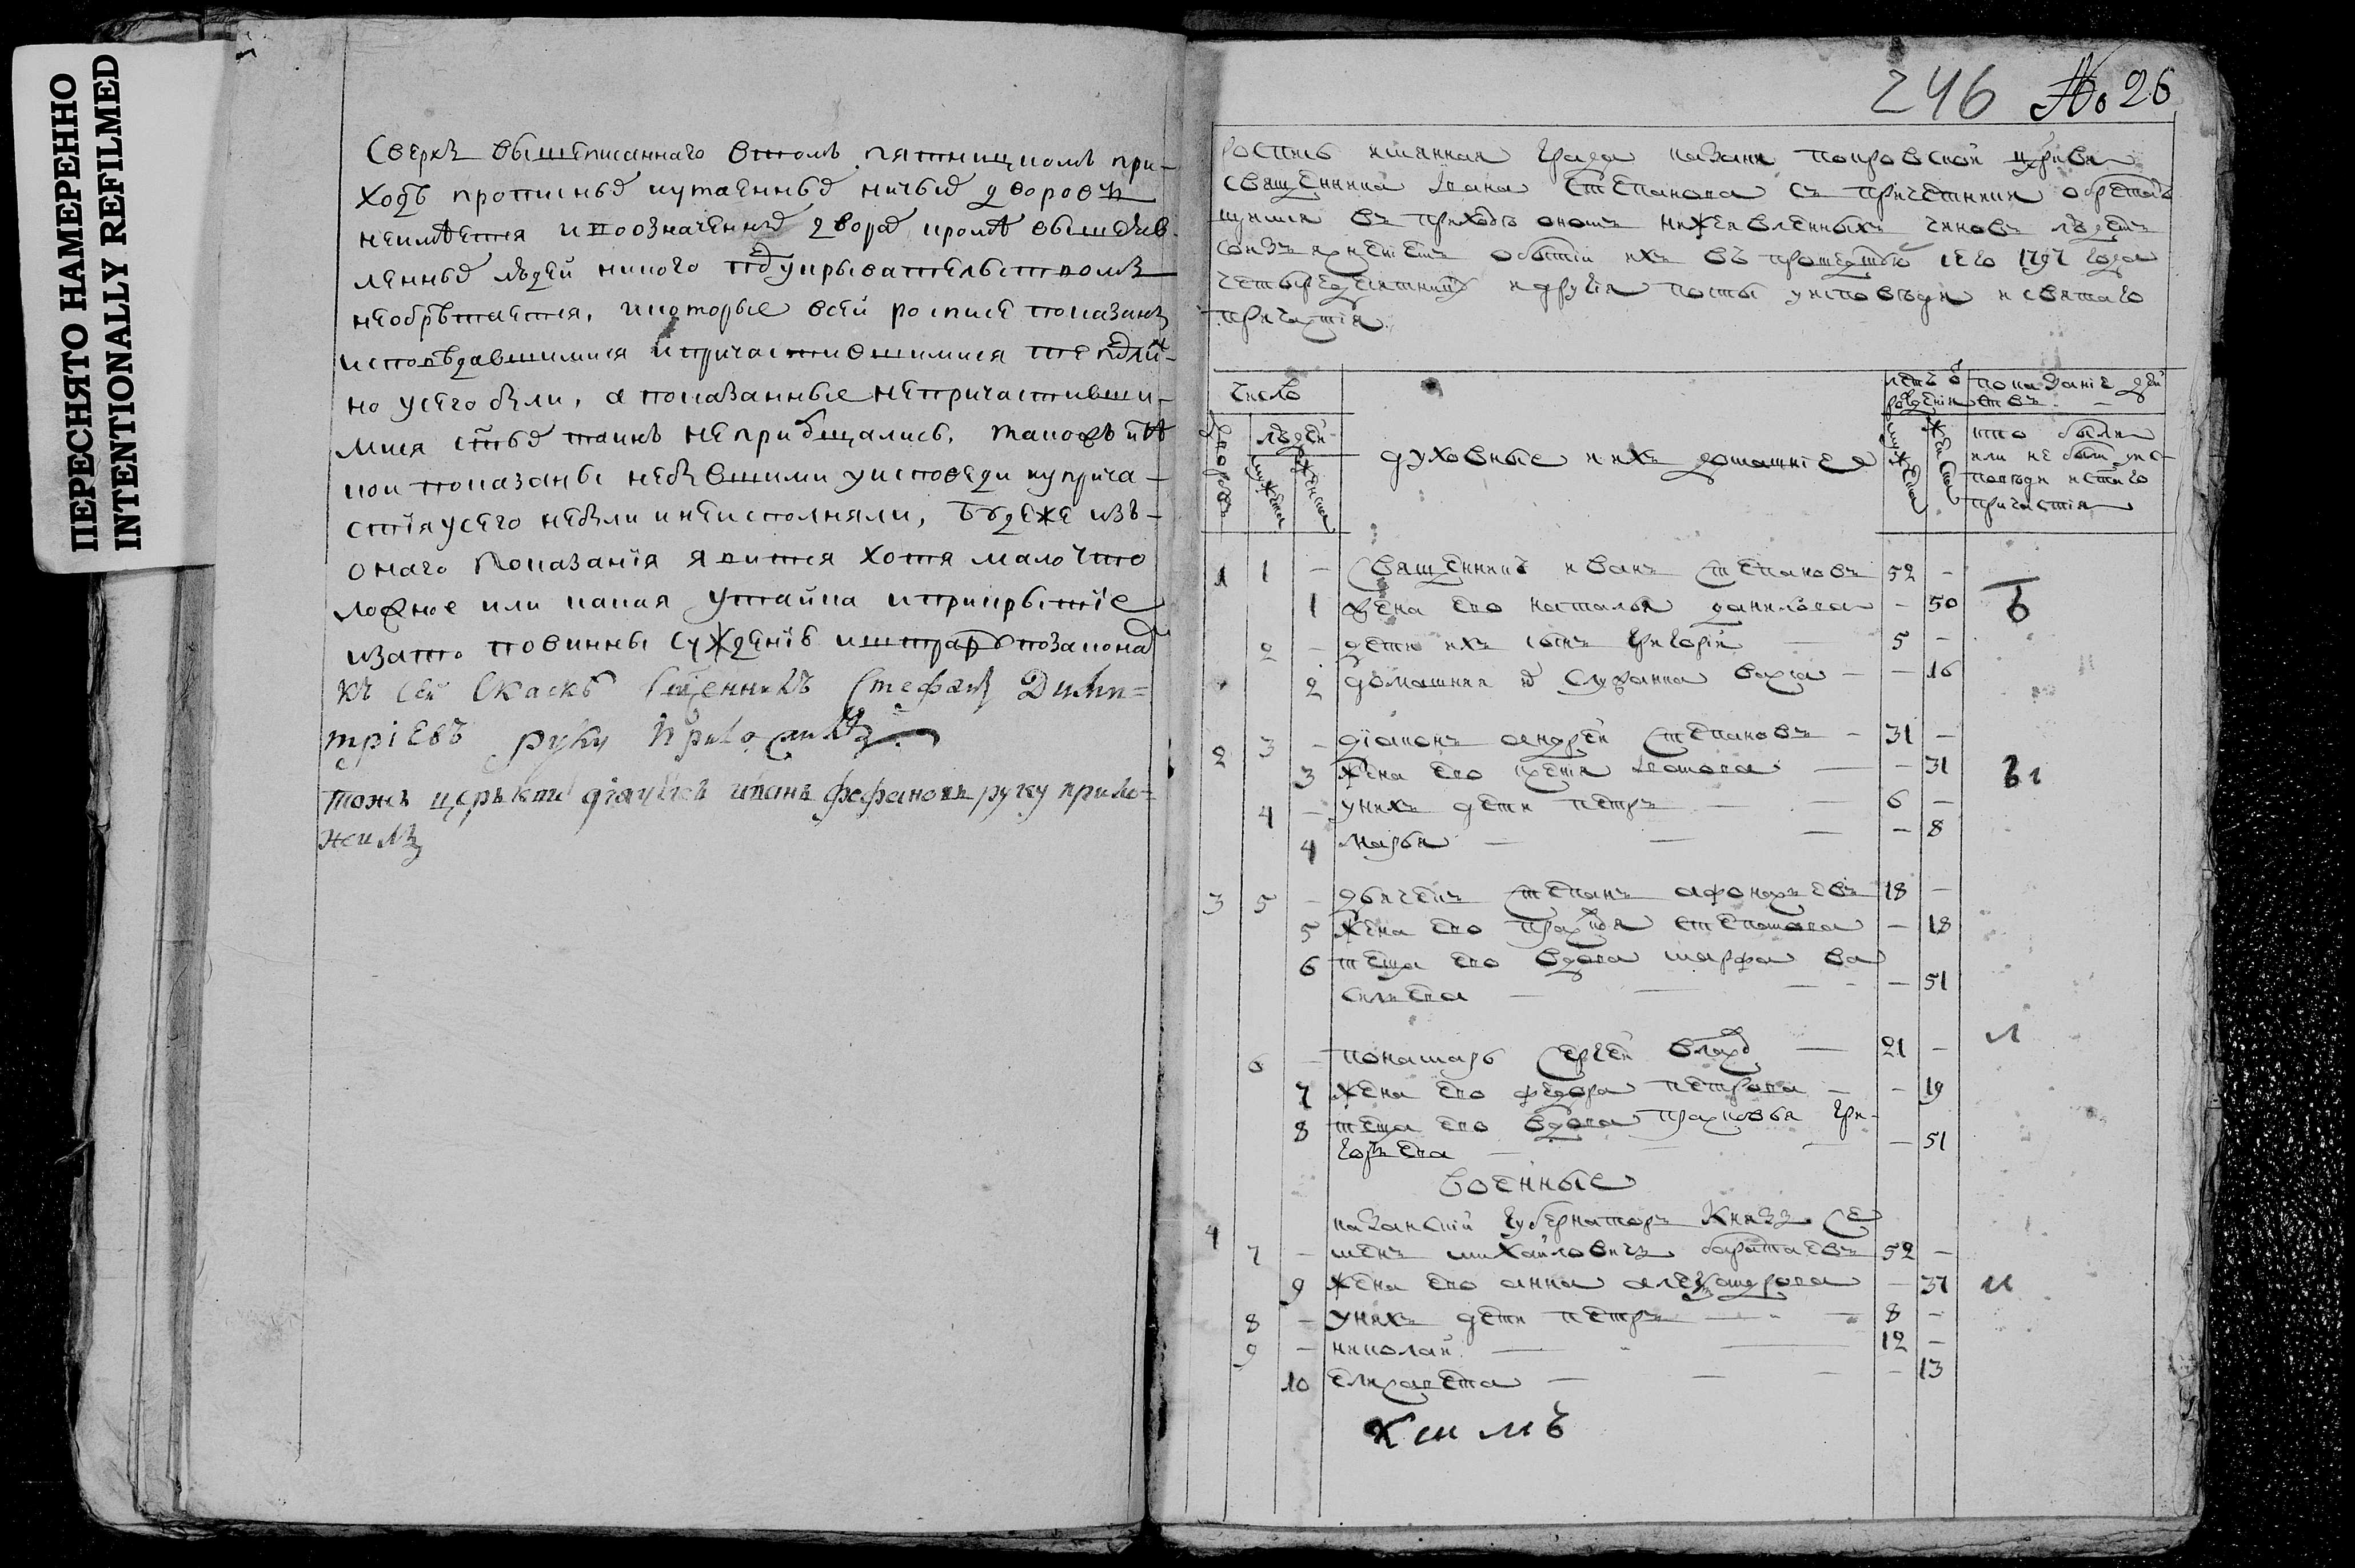 ПЕРЕСНЯТО НАМЕРЕННО
INTENTIONALLY REFILMED
Сверхъ вышеписаннаго втомъ пятницкомъ при-
ходѣ прописных иутаенных ничьих дворовъ
неимѣется ипоозначенных двора кромѣ вышеяв-
ленных людей никого подукрывательствомъ
необрѣтается, икоторые всей росписе показаны
исповѣдавшимися ипричастившимися те подлин-
но усего были, а показанные непричастивши-
мися стых таинъ неприобщались, такожъ и
кои показаны небывшими уисповеди иуприча-
стїя усего небыли инеисполняли, Будеже изъ
онаго показанїя явится хотя мало что
ложное или какая утайка иприкрытїе
изато повинны сужденїю иштрафу позаконам
къ сей Скаскѣ Сщенникъ Стефанъ Дими-
трїевъ руку приложилъ
тожъ церькви дїячекъ иванъ фефановъ руку прило-
жилъ
246 №26
роспись имянная града казани покровской церкви
священника Ивана Степанова съ причетники обретаю
щимся въ приходѣ ономъ нижеявленныхъ чиновъ людемъ
соизъяснениемъ о бытіи ихъ въ прошедшую сего 1797 года
четыредесятницу и другія посты уисповѣди и святаго
причастія
число
людей
дворовъ
мужеска
женска
духовные и ихъ домашнiея
летъ о
рожденія
мужеска
женска
показаніе дей
ствъ
кто были
или не были уис
поведи и стаго
причастія
1 1 - Священникъ иванъ Степановъ 52 -
1 жена его наталья данилова - 50 Б
2 - дети ихъ сынъ григорій 5 -
2 домашняя служанка - 16
2 3 - діаконъ андрей Степановъ - 31 -
3 жена его - 31
4 - унихъ дети петръ 6 -
4 марья - 8
3 5 - дьячекъ степанъ 18 -
5 жена его - 18
6 теща его вдова марфа ва
сильева - 51
6 - понамарь Сергей 21 - л
7 жена его федора петрова - 19
8 теща его вдова прасковья гри-
горьева - 51
военные
4 казанскій губернаторъ Князь Се
7 - менъ михайловичъ баратаевъ 52 -
9 жена его анна александрова - 37 и
8 - унихъ дети петръ 8 -
9 - николай 12 -
10 елизавета - 13